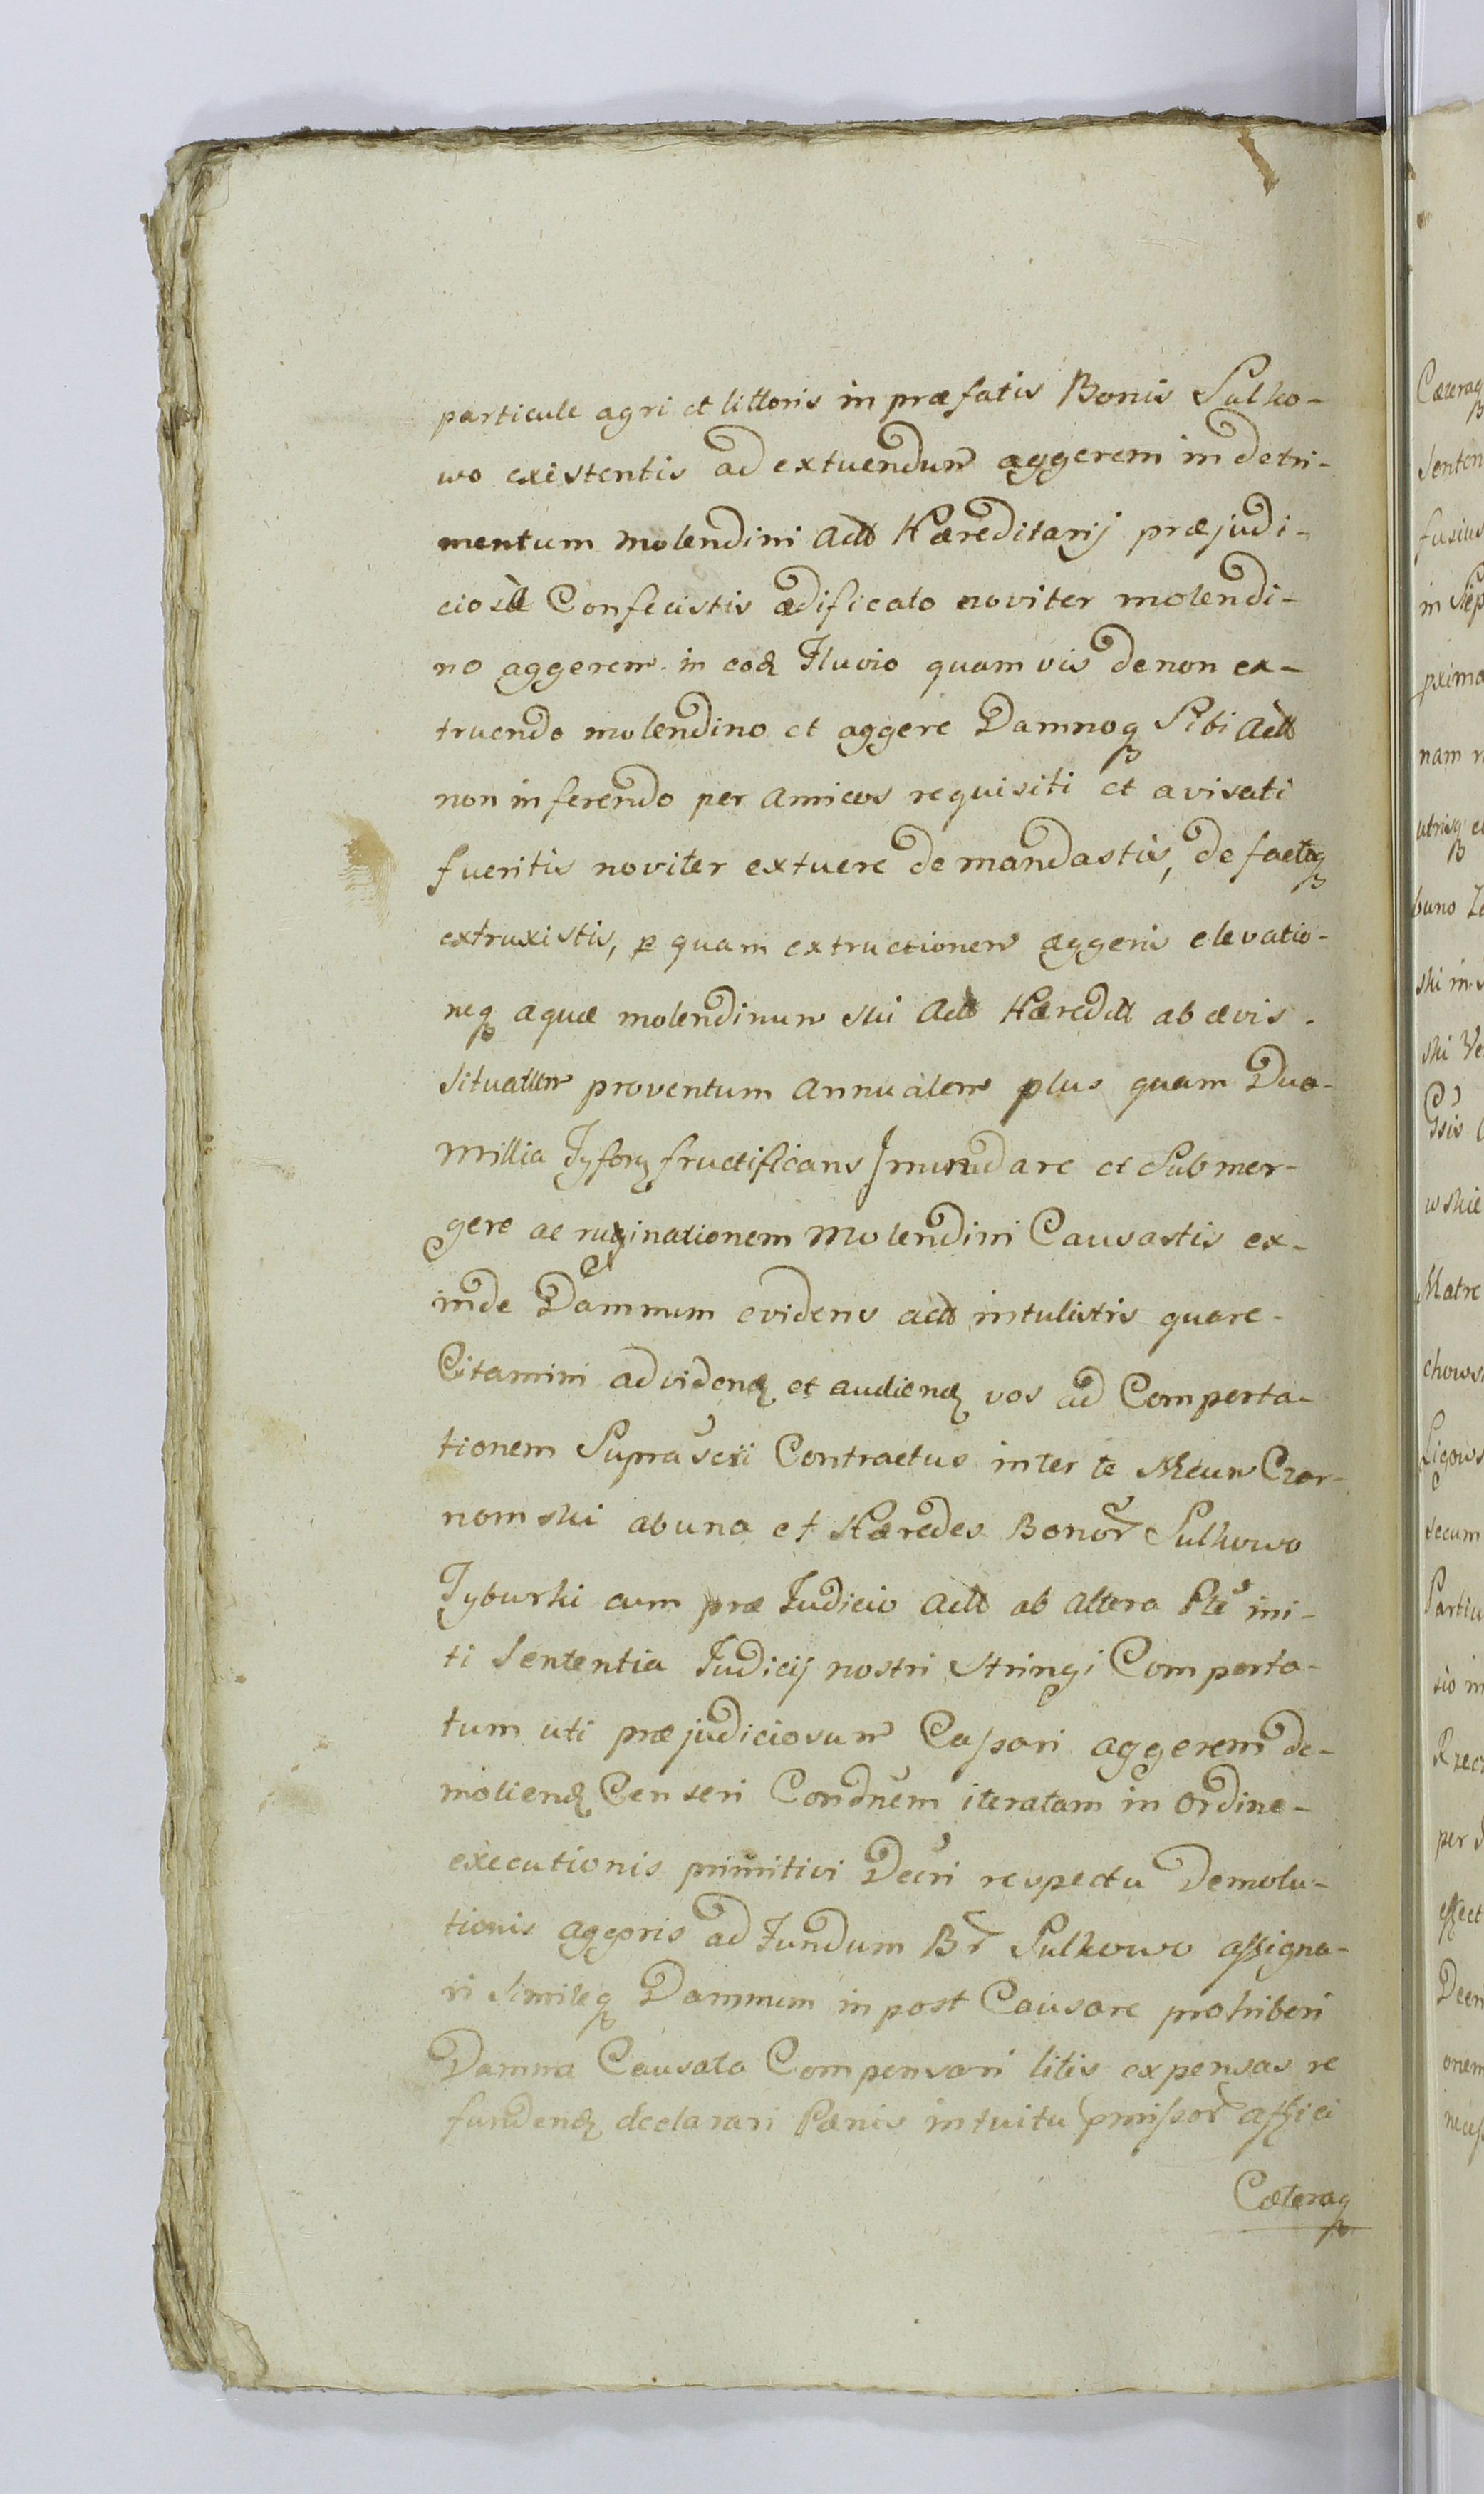 particule agri et littoris in præfatis Bonis Sulko-
wo existentis ad extuendum aggerem in detri-
mentum molendini Actt Hæreditarij præjudi-
ciose Confecistis ædificato noviter molendi-
no aggerem in eod Fluvio quamvis de non ex-
truendo molendino et aggere Damnoq Sibi Actt
non inferendo per Amicos requisiti et avisati
fueritis noviter extuere demandastis, de factoq
extruxistis, p quam extructionem aggeris elevatio-
neq aquæ molendinum sui Actt Hæredtt ab ævis
situatum proventum Annualem plus quam Duo-
Millia Tyfory fructificans Jnundare et Submer-
gere ac ruginationem Molendini Causastis ex-
inde Damnum evidens actt intulistis quare
Citamini ad videnđ et audienđ vos ad Comporta-
tionem Suprascri Contractus inter te Czar-
nomski ab una et Hæredes Bonor Sulkowo
Tyburski cum præ Judicio Actt ab altera Pte ini-
ti Sententia Judicij nostri Stringi Comporta-
tum uti præjudiciosum Cassari aggerem de-
moliend Censeri Condnem iteratam in Ordine
executionis primitivi Decri respectu Demolu-
tionis aggeris ad Fundum Br Sulkowo assigna-
ri Simileq Damnum in post Causare prohiberi
Damna Causata Compensari litis expensas re
fundend declarari Pænis intuitu pmissor affici
Cæteraq
Cæteraq
Senten
fusius
in
pxima
nam
utrisq
buno
ski in
ski
wskie
Matre
chows
Ligows
secum
Partiu
sio in
per
effect
Decr
onem
necess